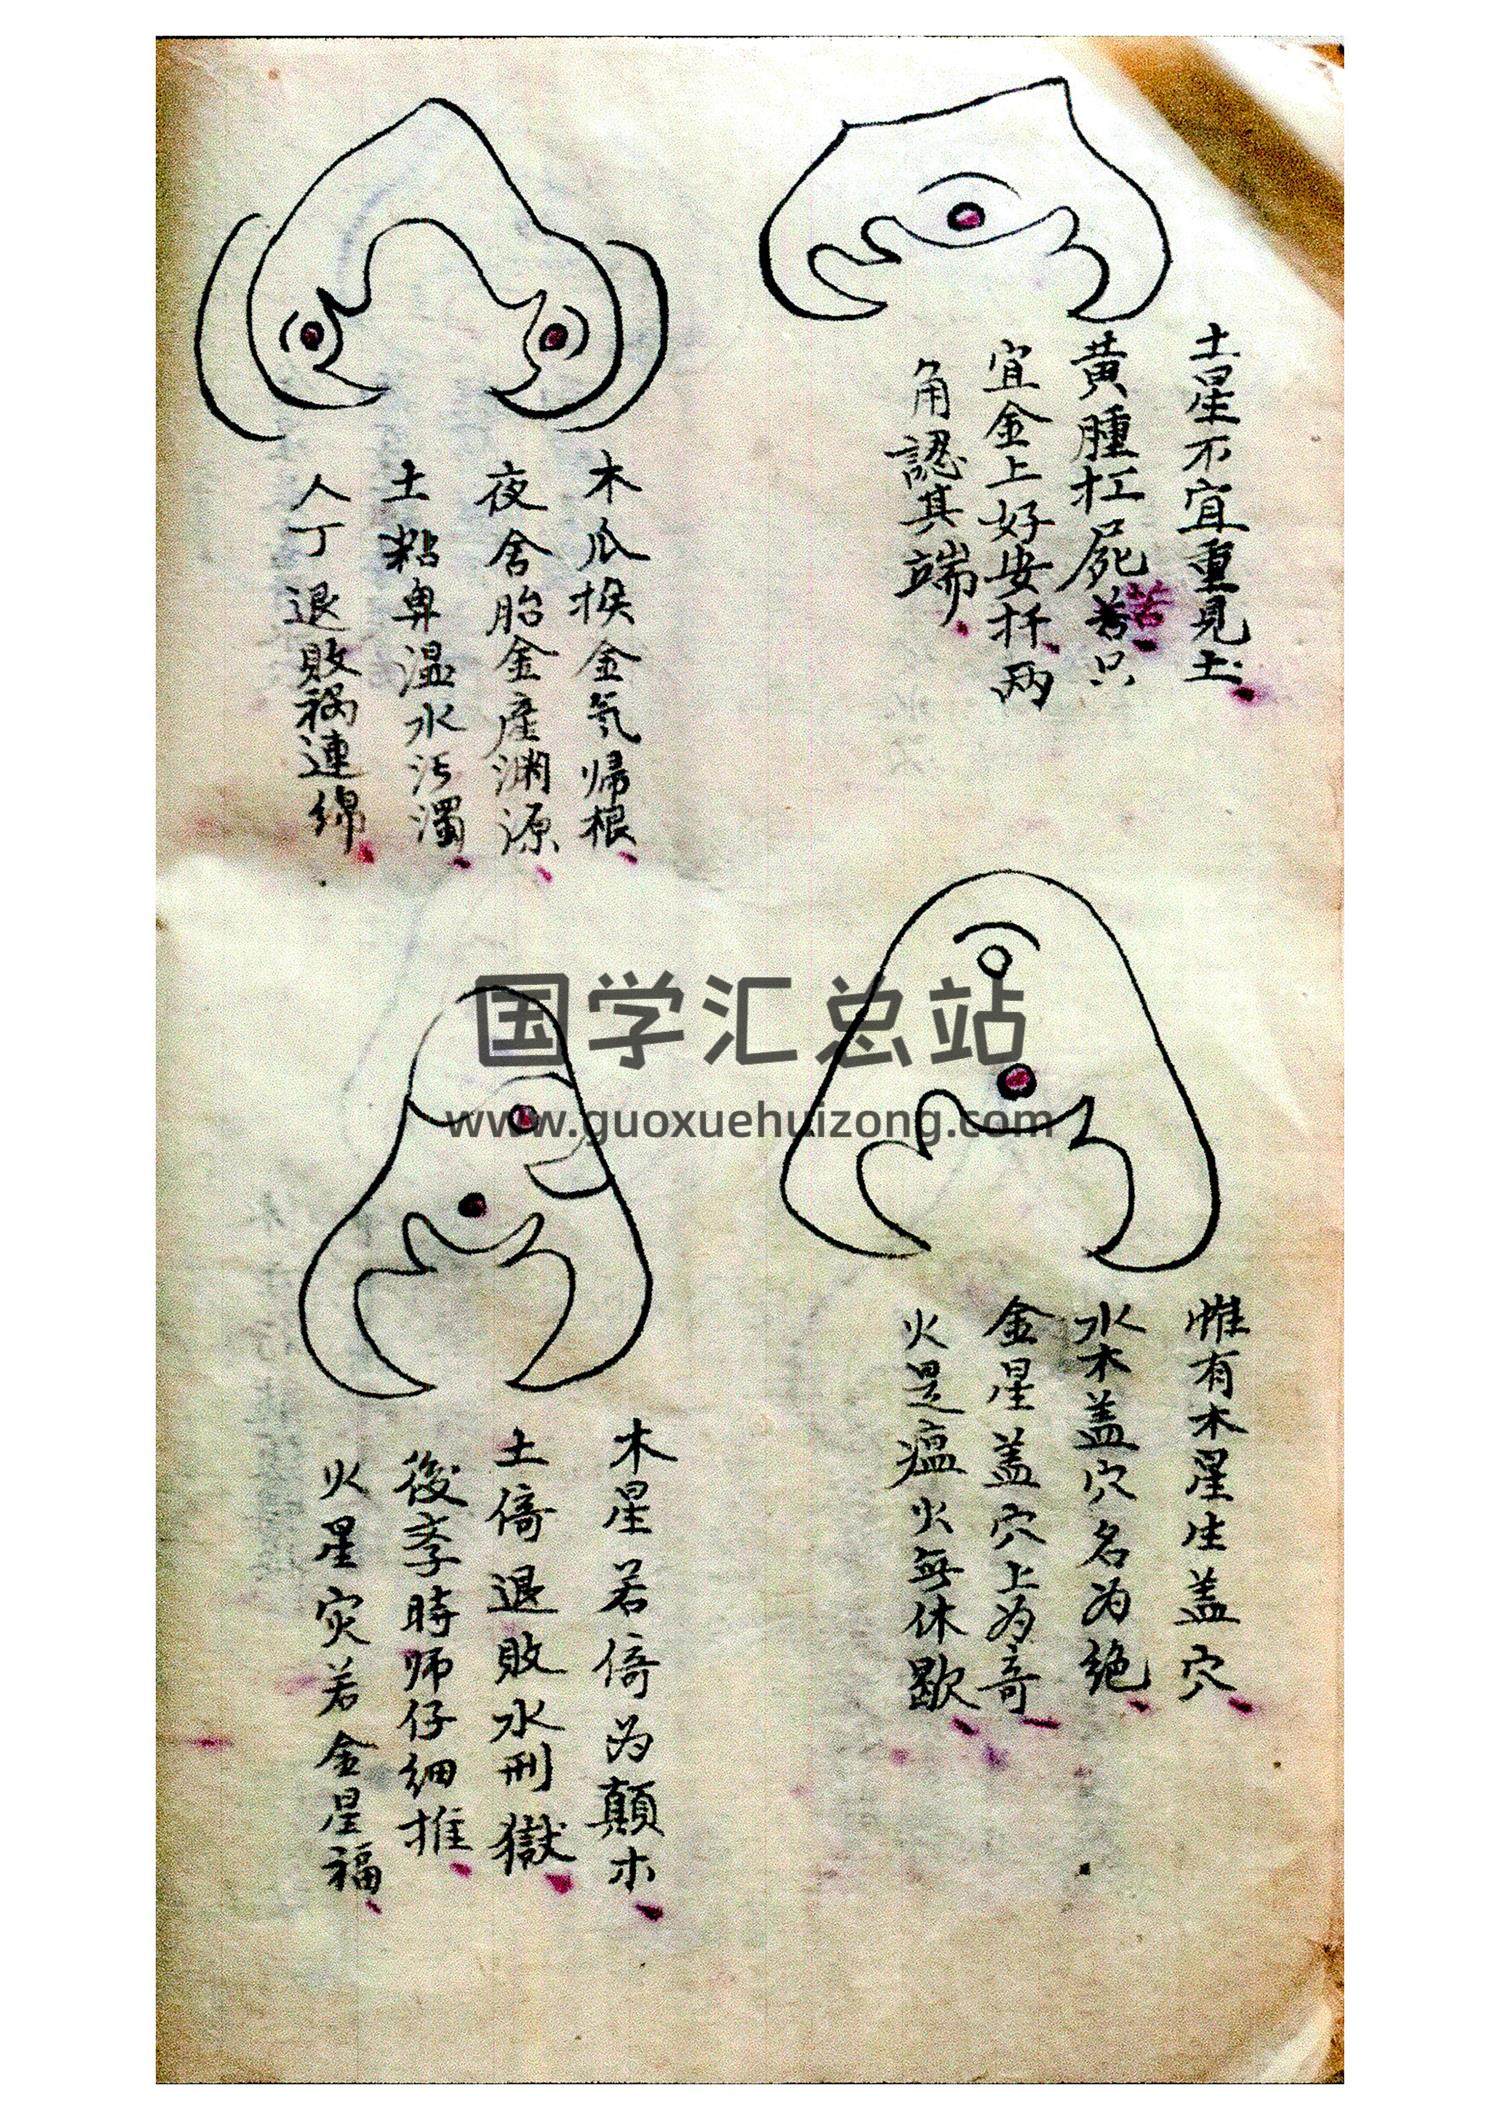 土星不宜重見土
黃腫扛屍苦只
苦
宜金上好安扦兩
角認其端
木瓜猴金氣歸根
夜舍胎金產渊源
土粘鼻温水污濁
人丁退敗祸連綿
惟有木星生盖穴
水木盖穴名为绝
金星盖穴上为奇
火是瘟火無休歇
木星若倚为顛木
土倚退敗水刑獄
後李時师仔细推
火星灾若金星福
国学汇总站
www.guoxuehuizong.com